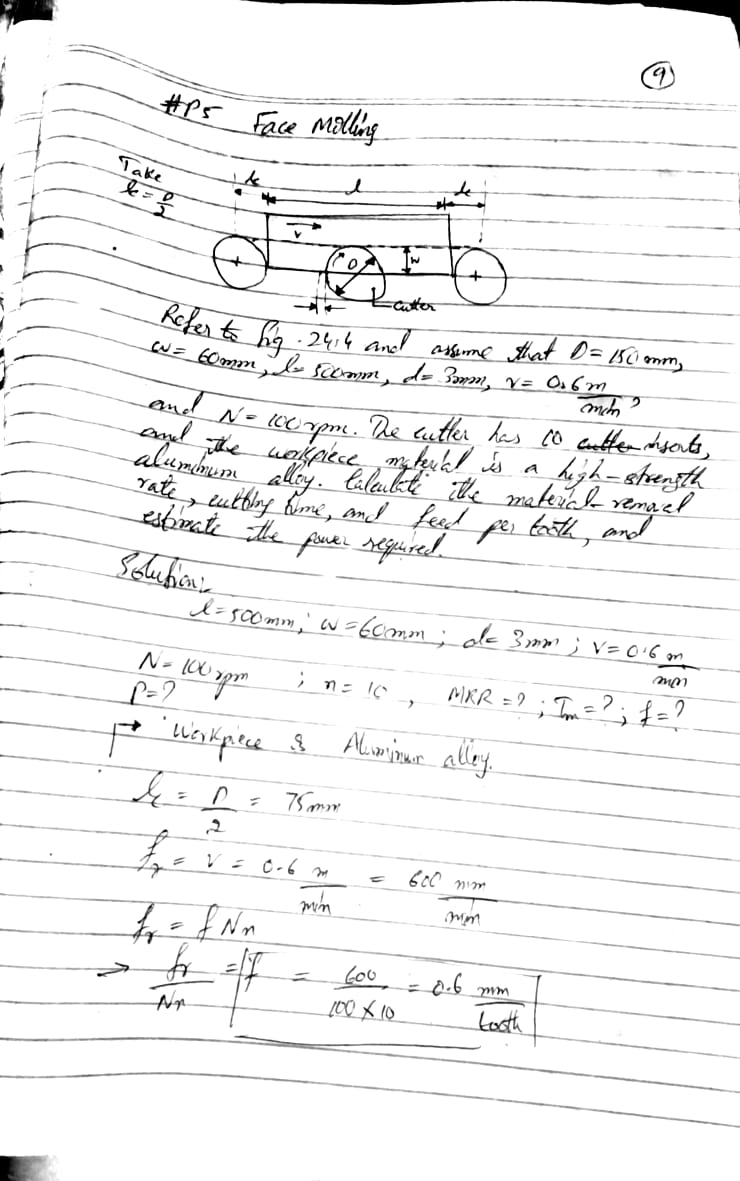 9
#P5 Face Milling
Take
lc = D/2
lc l lc
v
D w
cutter
Refer to fig. 24.4 and assume that D = 150 mm,
w = 60mm, l = 500mm, d = 3mm, v = 0.6 m/min,
and N = 100 rpm. The cutter has 10 inserts,
and the workpiece material is a high-strength
aluminum alloy. Calculate the material-removal
rate, cutting time, and feed per tooth, and
estimate the power required.
Solution:
l = 500mm; w = 60mm; d = 3mm; V = 0.6 m/min
N = 100 rpm ; n = 10 , MRR = ? ; Tm = ? ; f = ?
P = ?
Workpiece is Aluminum alloy.
lc = D/2 = 75mm
fr = v = 0.6 m/min = 600 mm/min
fr = f N n
⇒ fr/Nn = f = 600/(100 × 10) = 0.6 mm/tooth